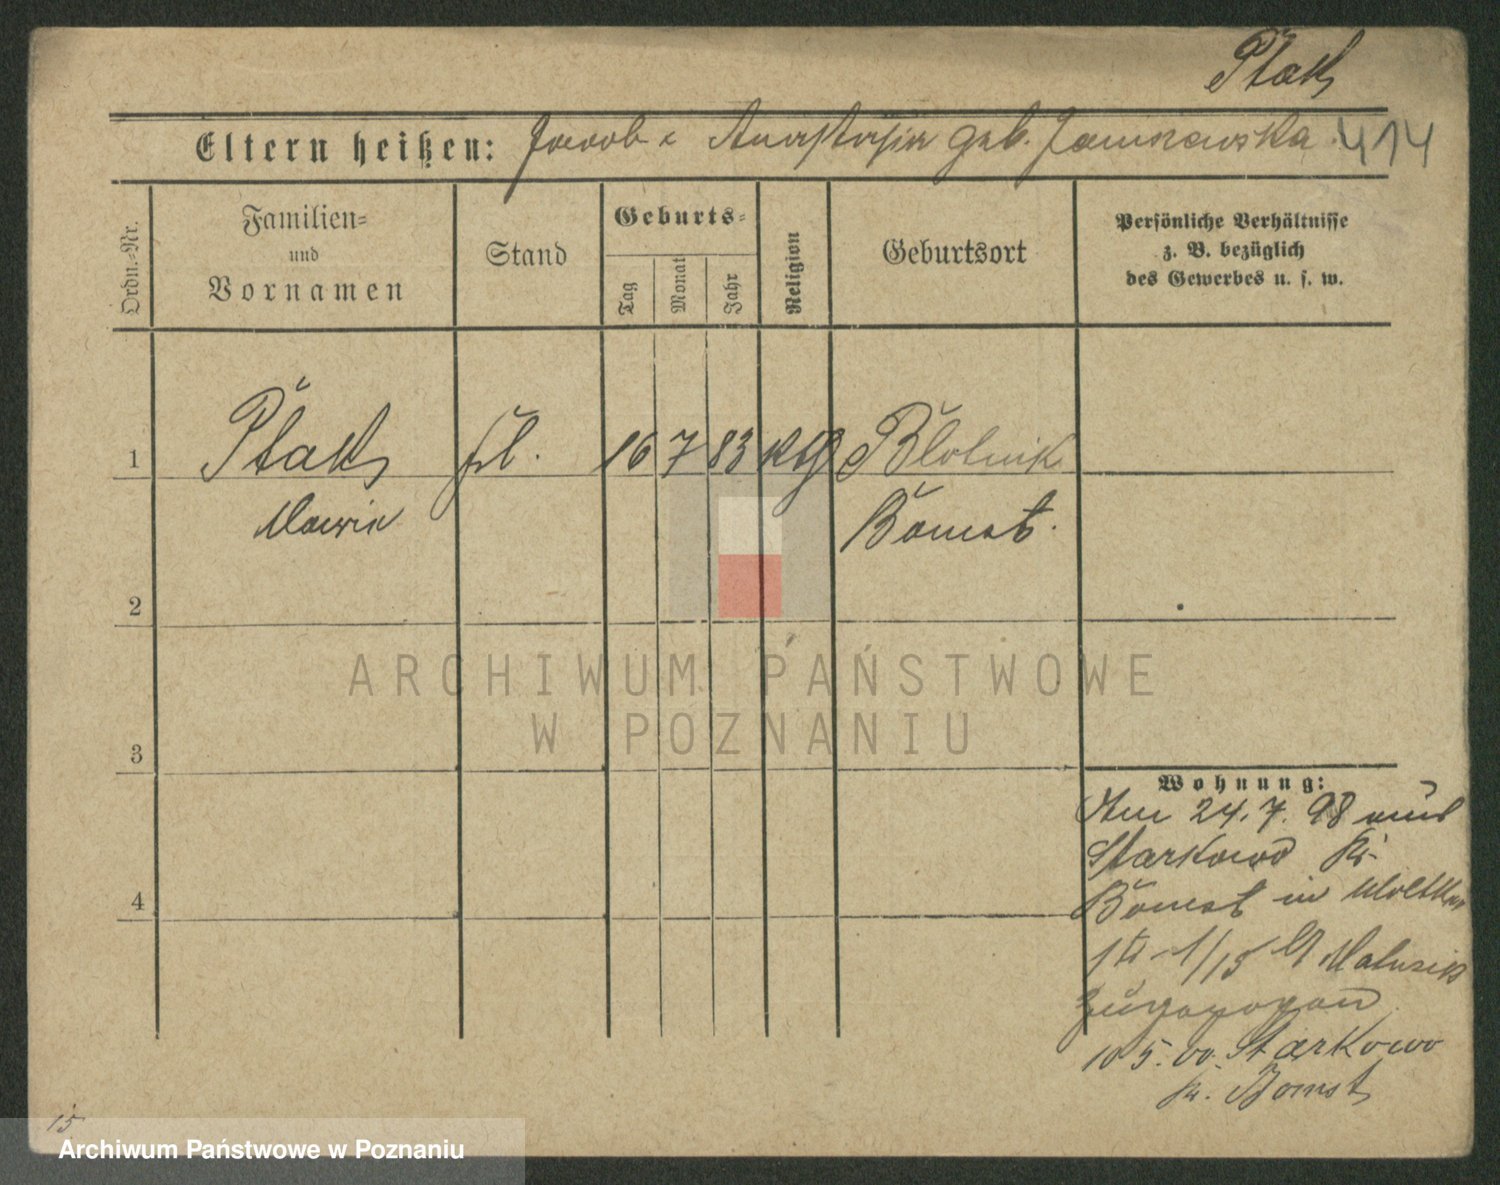 Ptak
Eltern heißen: Jacob & Anastasia geb. Janiszewska 414
Ordn.-Nr.
Familien-
und
Vornamen
Stand
Geburts-
Tag
Monat
Jahr
Religion
Geburtsort
Persönliche Verhältnisse
z. B. bezüglich
des Gewerbes u. s. w.
1 Ptak 16 7 83 kth Blotnik
Marie Bomst.
2
ARCHIWUM PAŃSTWOWE
W POZNANIU
3
Wohnung:
Am 24.7.98 aus
Starkowo Kr
4
Bomst in
1/15 b/
zugezogen
10 5. 00. Starkowo
Kr. Bomst
15
Archiwum Państwowe w Poznaniu